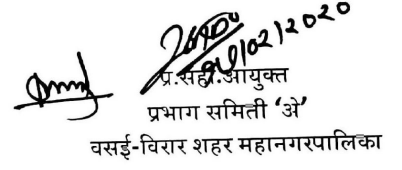 02/2020
प्र.सहा.आयुक्त
प्रभाग समिती ‘अे’
वसई-विरार शहर महानगरपालिका